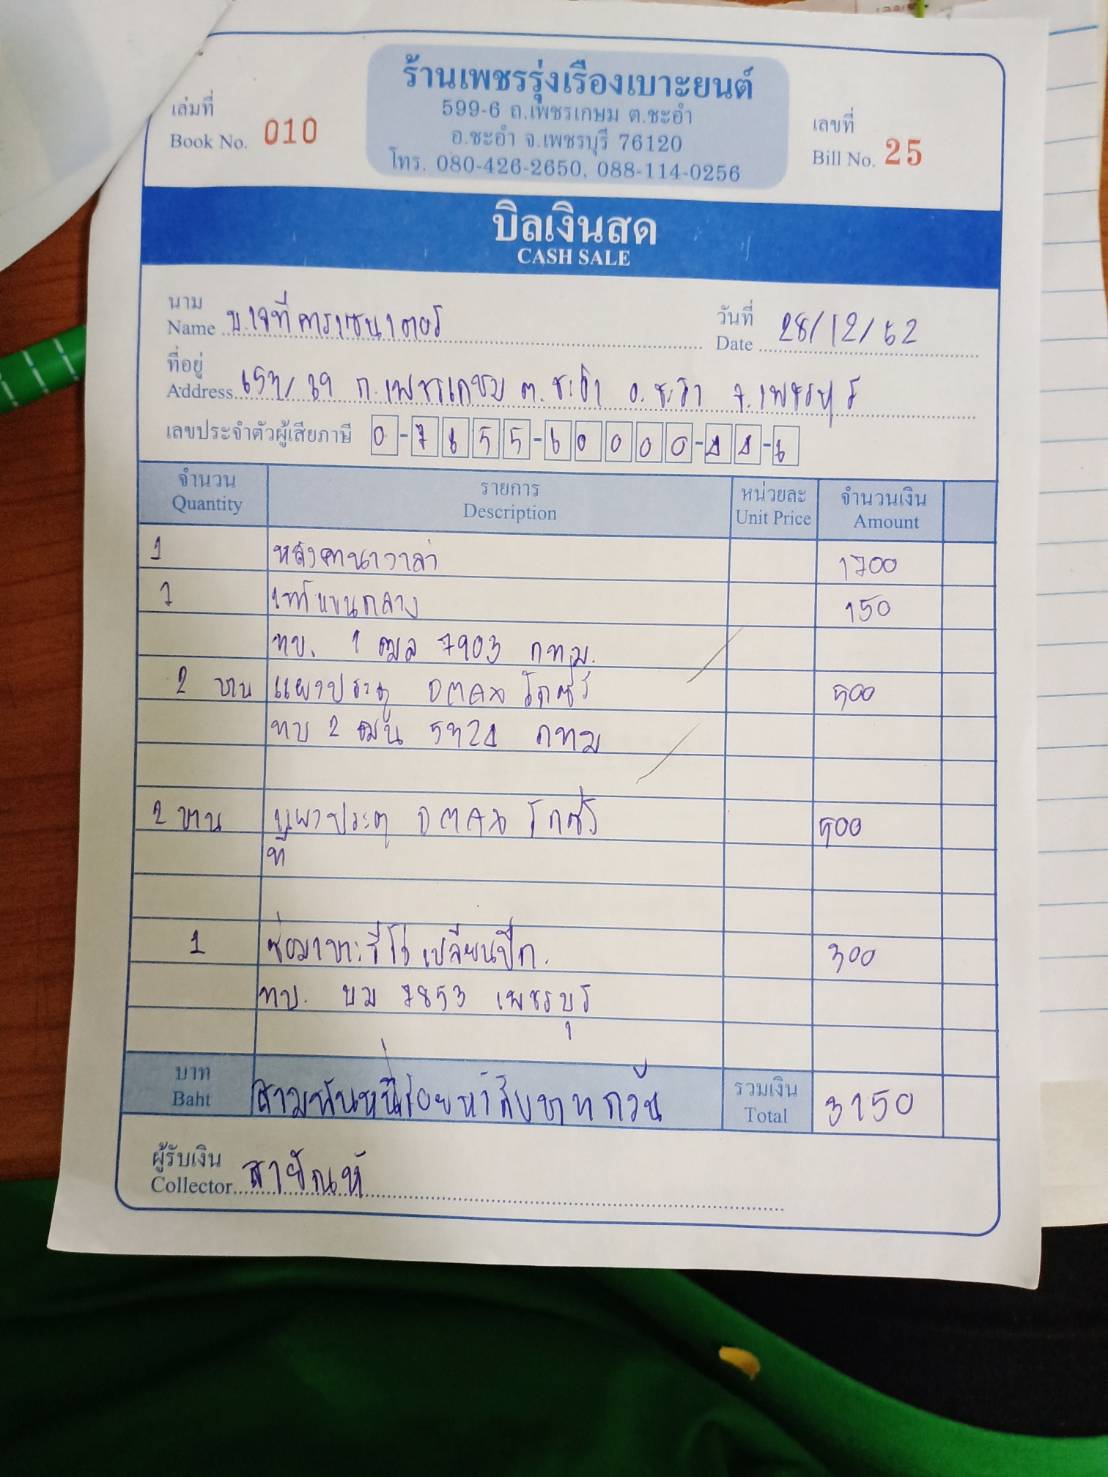 ร้านเพชรรุ่งเรืองเบาะยนต์
599-6 ถ.เพชรเกษม ต.ชะอำ
อ.ชะอำ จ.เพชรบุรี 76120
โทร. 080-426-2650, 088-114-0256
เล่มที่
Book No. 010
เลขที่
Bill No. 25
บิลเงินสด
CASH SALE
นาม
Name บ.เจที
วันที่
Date 28/12/62
ที่อยู่
Address ถ.เพชรเกษม ต.ชะอำ อ.ชะอำ จ.เพชรบุรี
เลขประจำตัวผู้เสียภาษี 0-7655-60000-11-6
จำนวน Quantity รายการ Description หน่วยละ Unit Price จำนวนเงิน Amount
1 หลังคานาวาล่า 1700
1 เท้าแขนกลาง 150
ทบ. 1 ฒล 7903 กทม.
2 บาน แผงประตู DMAX โกซี่ 500
ทบ 2 ฒน กทม
2 บาน แผงประตู DMAX โกซี่ 500
ที
1 ซ่อมเบาะรีโว่ เปลี่ยนปีก. 300
ทบ. บม 7853 เพชรบุรี
บาท
Baht สามพันหนึ่งร้อยห้าสิบบาทถ้วน
รวมเงิน
Total 3150
ผู้รับเงิน
Collector สายัณห์